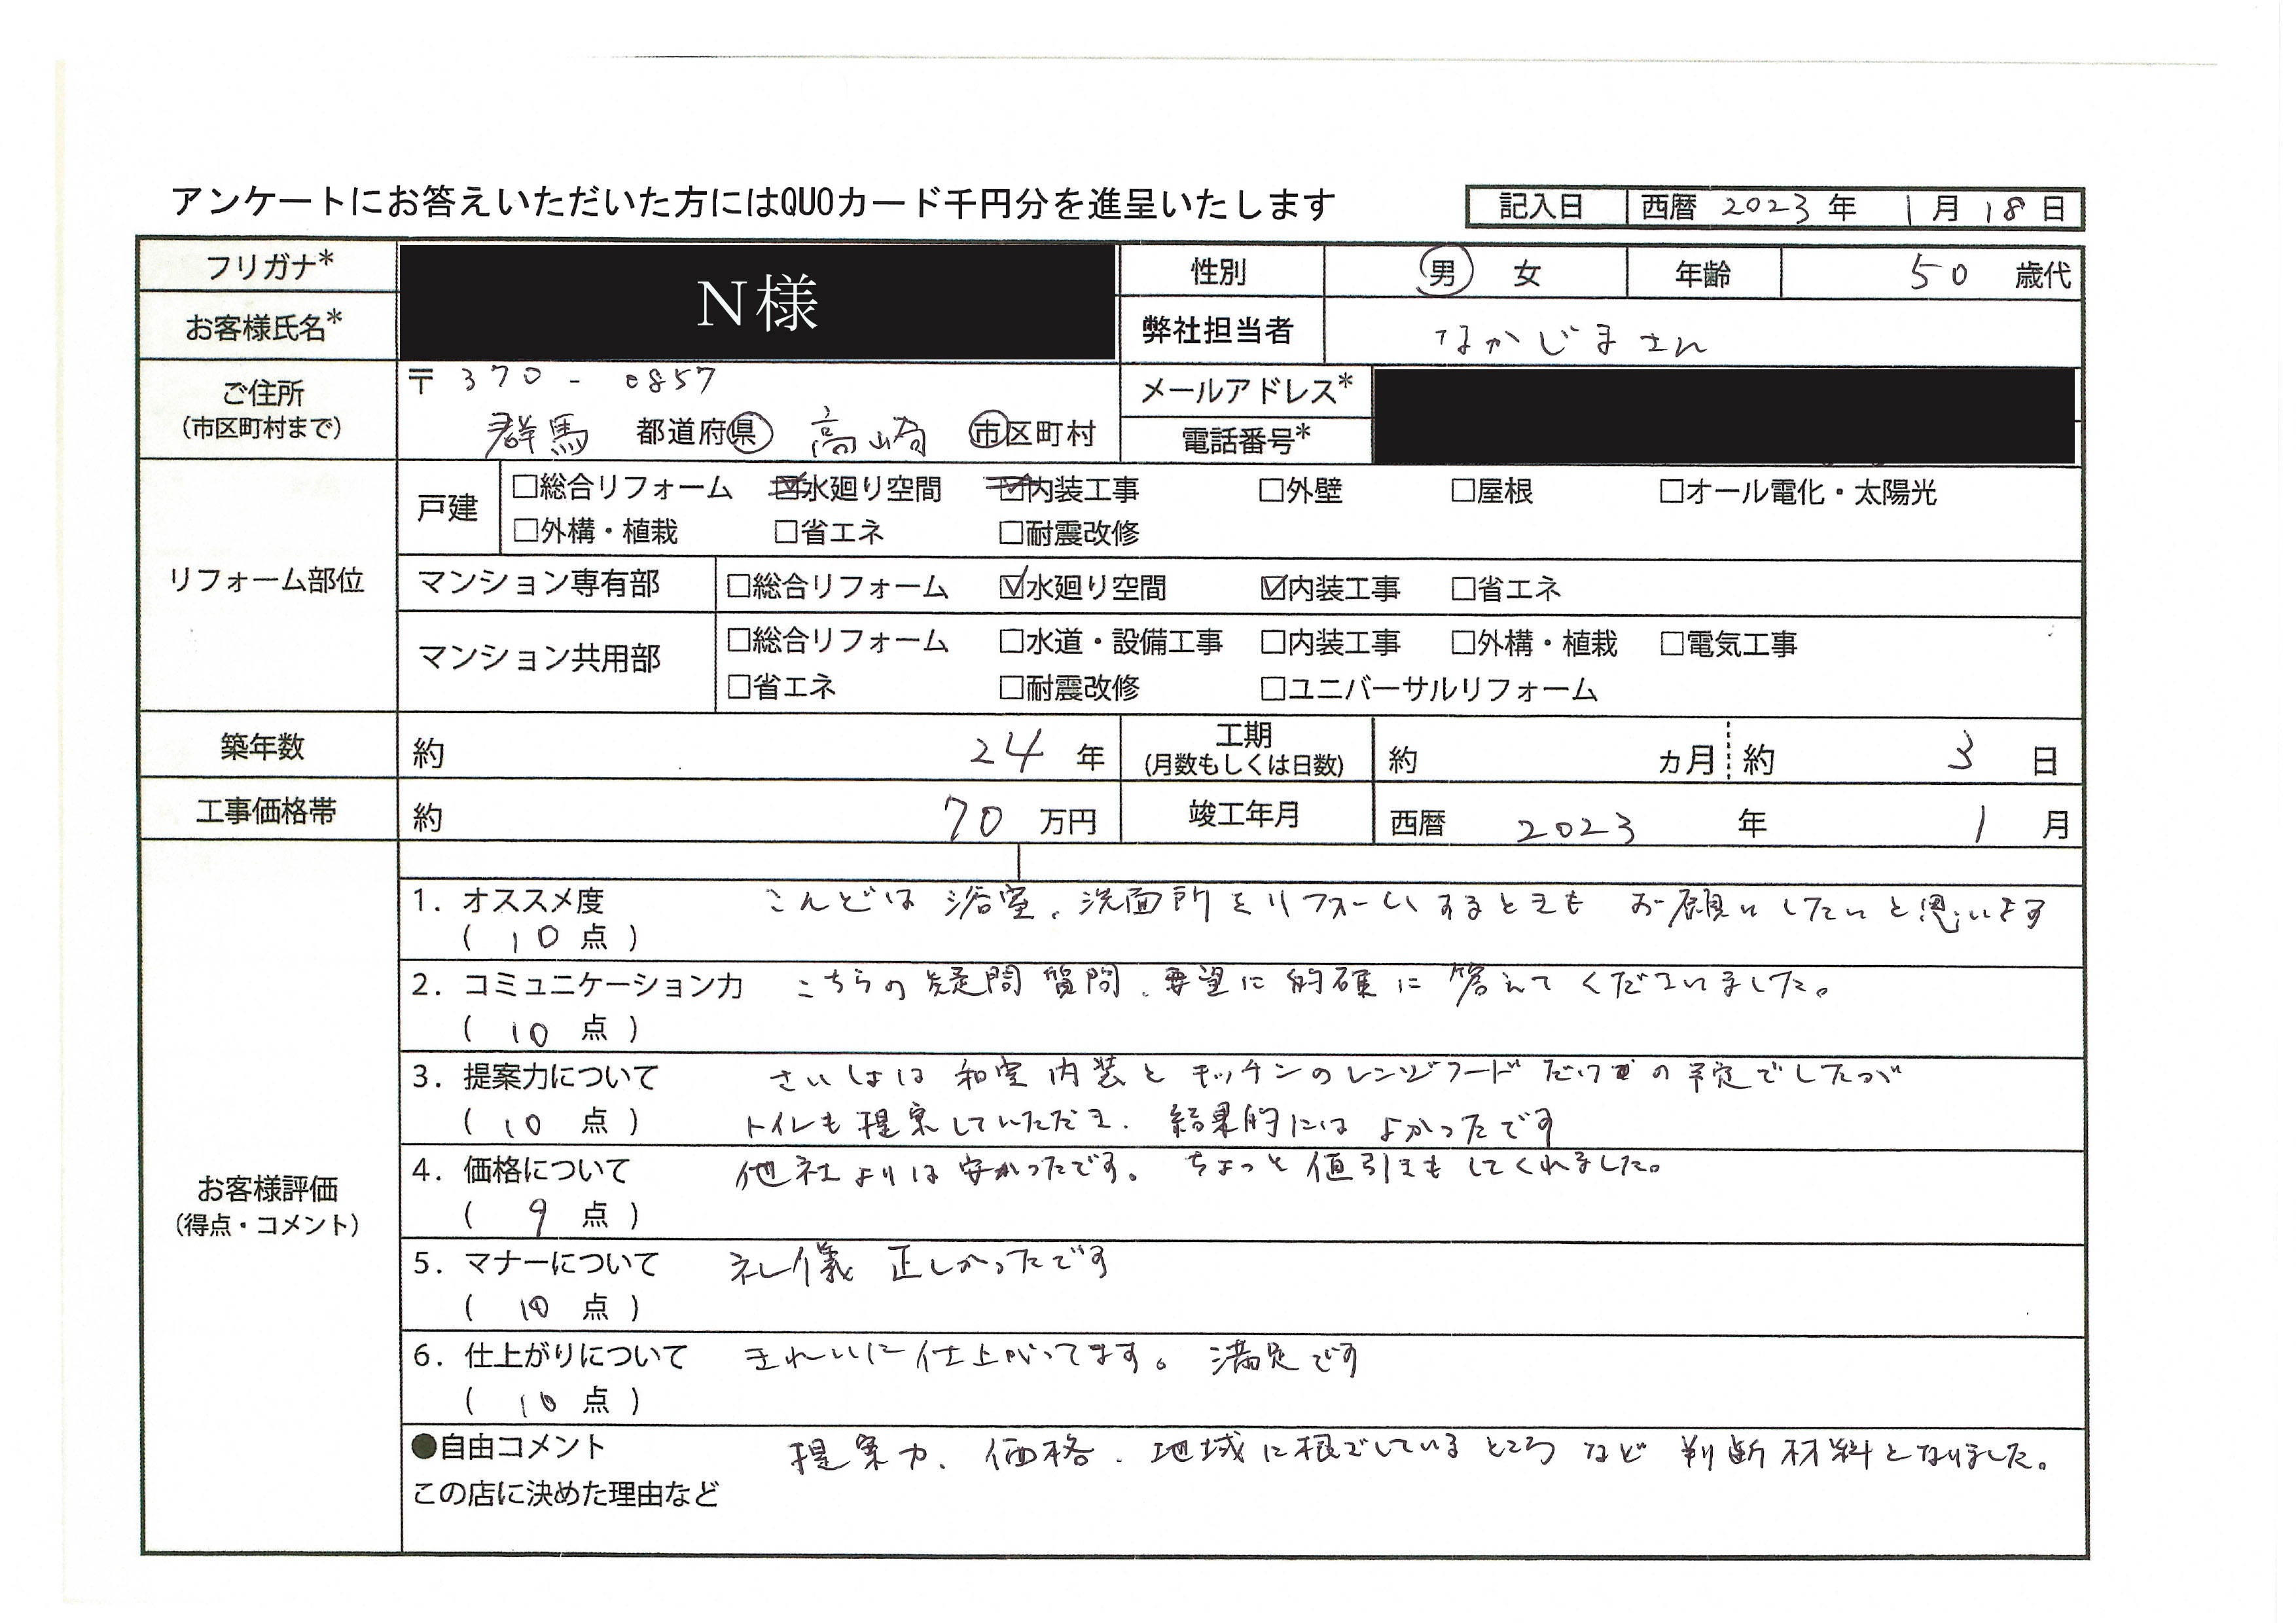 アンケートにお答えいただいた方にはQUOカード千円分を進呈いたします
記入日 西暦 2023 年 1 月 18 日
フリガナ*
お客様氏名*
N様
性別 男 女 年齢 50 歳代
弊社担当者 なかじまさん
ご住所
(市区町村まで)
〒 370 - 0857
群馬 都道府県 高崎 市区町村
メールアドレス*
電話番号*
リフォーム部位
戸建
□総合リフォーム ☑水廻り空間 ☑内装工事 □外壁 □屋根 □オール電化・太陽光
□外構・植栽 □省エネ □耐震改修
マンション専有部 □総合リフォーム ☑水廻り空間 ☑内装工事 □省エネ
マンション共用部
□総合リフォーム □水道・設備工事 □内装工事 □外構・植栽 □電気工事
□省エネ □耐震改修 □ユニバーサルリフォーム
築年数 約 24 年
工期
(月数もしくは日数)
約 ヵ月 約 3 日
工事価格帯 約 70 万円 竣工年月 西暦 2023 年 1 月
お客様評価
(得点・コメント)
1. オススメ度 こんどは浴室、洗面所をリフォームするときも お願いしたいと思います
( 10 点 )
2. コミュニケーション力 こちらの疑問 質問、要望に的確に答えてくださいました。
( 10 点 )
3. 提案力について さいしょは 和室内装とキッチンのレンジフードだけの予定でしたが
( 10 点 ) トイレも提案していただき、結果的にはよかったです
4. 価格について 他社よりは安かったです。ちょっと値引きもしてくれました。
( 9 点 )
5. マナーについて 礼儀正しかったです
( 10 点 )
6. 仕上がりについて きれいに仕上がってます。満足です
( 10 点 )
●自由コメント 提案力、価格、地域に根ざしているところなど判断材料となりました。
この店に決めた理由など